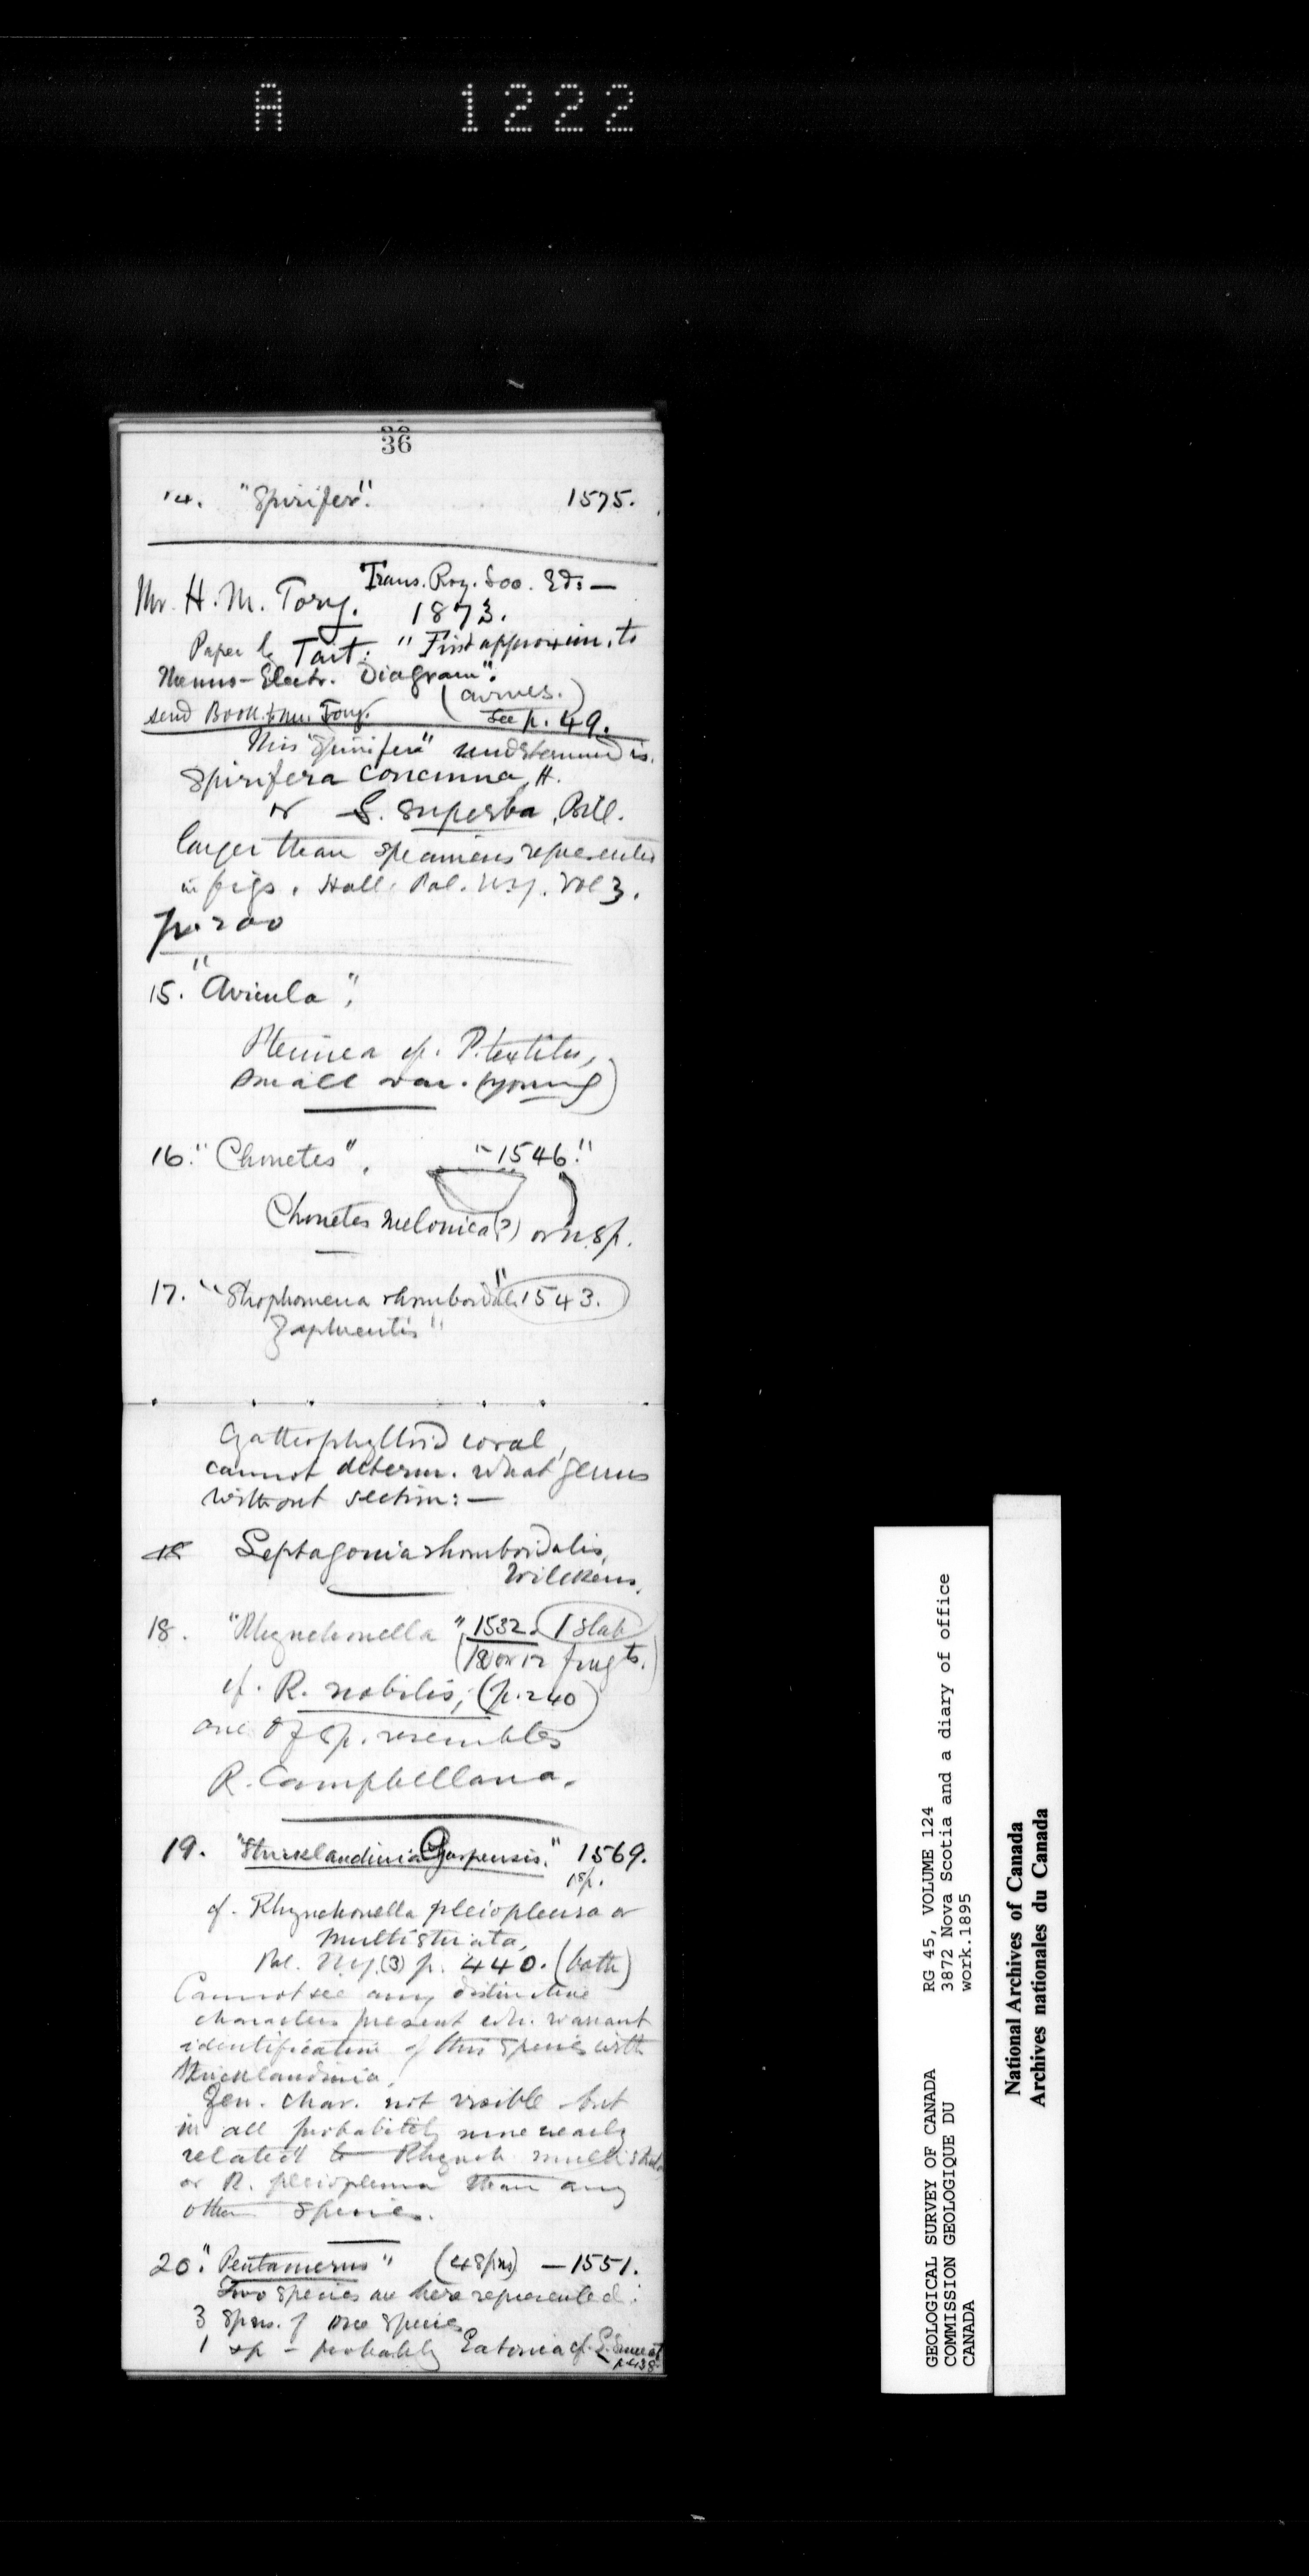 A 1222
36
14. "Spirifer". 1575.
Trans. Roy. Soc. Ed: —
Mr. H. M. Tory. 1873.
Paper by Tait: "First approxim. to
Thermo-Electr. Diagram".
send Book to Mr. Tory. see p. 49.
This "Spirifera" undetermined is
Spirifera concinna, H.
or S. superba, Bill.
larger than specimens represented
in figs. Hall. Pal. N.Y. Vol 3.
p. 200
15. "Avicula",
Pterinea cf. P. textilis,
small var. (young)
16. "Chonetes". "1546."
Chonetes melonica (?) or n. sp.
17. "Strophomena rhomboidalis 1543.
Zaphrentis"
Cyathophylloid coral,
cannot determ. what genus
without section: —
18 Leptagonia rhomboidalis,
Wilckens.
18. "Rhynchonella" 1532. 1 slab
(10 or 12 fragts.)
cf. R. nobilis, (p. 240)
one of sp. resembles
R. Campbellana.
19. "Stricklandinia Gaspensis." 1569.
1 sp.
cf. Rhynchonella pleiopleura or
multistriata,
Pal. N.Y. (3) p. 440. (both)
Cannot see any distinctive
characters present wh. warrant
identification of this species with
Stricklandinia.
Gen. char. not visible but
in all probability more nearly
related to Rhynch. multistriata
or R. pleiopleura than any
other species.
20. "Pentamerus" (4 spms) — 1551.
Two species are here represented:
3 spms. of one species
1 sp — probably Eatonia cf. E.
p. 438
GEOLOGICAL SURVEY OF CANADA RG 45, VOLUME 124
COMMISSION GEOLOGIQUE DU 3872 Nova Scotia and a diary of office
CANADA work.1895
National Archives of Canada
Archives nationales du Canada